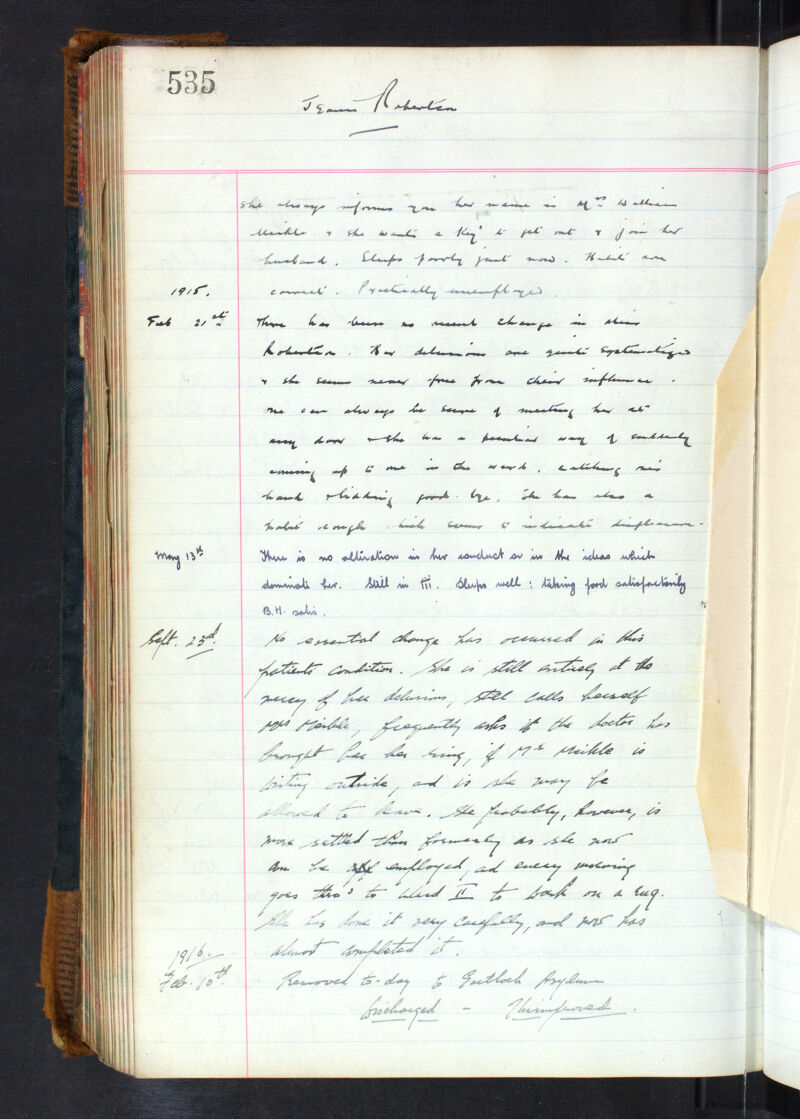 535
Jeanie Robertson
She always informs you her name is Mrs William
Meikle & she wants a key to get out & join her
husband. Sleeps poorly just now. Habits are
1915.
correct. Practically unemployed.
Feb 21st
There has been no recent change in Miss
Robertson. Her delusions are quite systematized
& she seems never free from their influence.
One can always be sure of meeting her at
any door & she has a peculiar way of suddenly
coming up to one in the ward, catching one's
hand & bidding good-bye. She has also a
habit cough which seems to indicate displeasure.
May 13th
There is no alteration in her conduct or in the ideas which
dominate her. Still in III. Sleeps well: taking food satisfactorily
B.H. satis.
Sept. 23d.
No essential change has occurred in this
patients condition. She is still entirely at the
mercy of her delusions, still calls herself
Mrs Meikle, frequently asks if the doctor has
brought her her ring, if Mr Meikle is
waiting outside, and is she may be
allowed to leave. She probably, however, is
more settled than formerly as she now
can be employed, and every morning
goes thro' to Ward II to work on a rug.
She has done it very carefully, and now has
almost completed it.
1916.
Feb. 10th.
Removed to-day to Gartloch Asylum
Discharged - Unimproved.